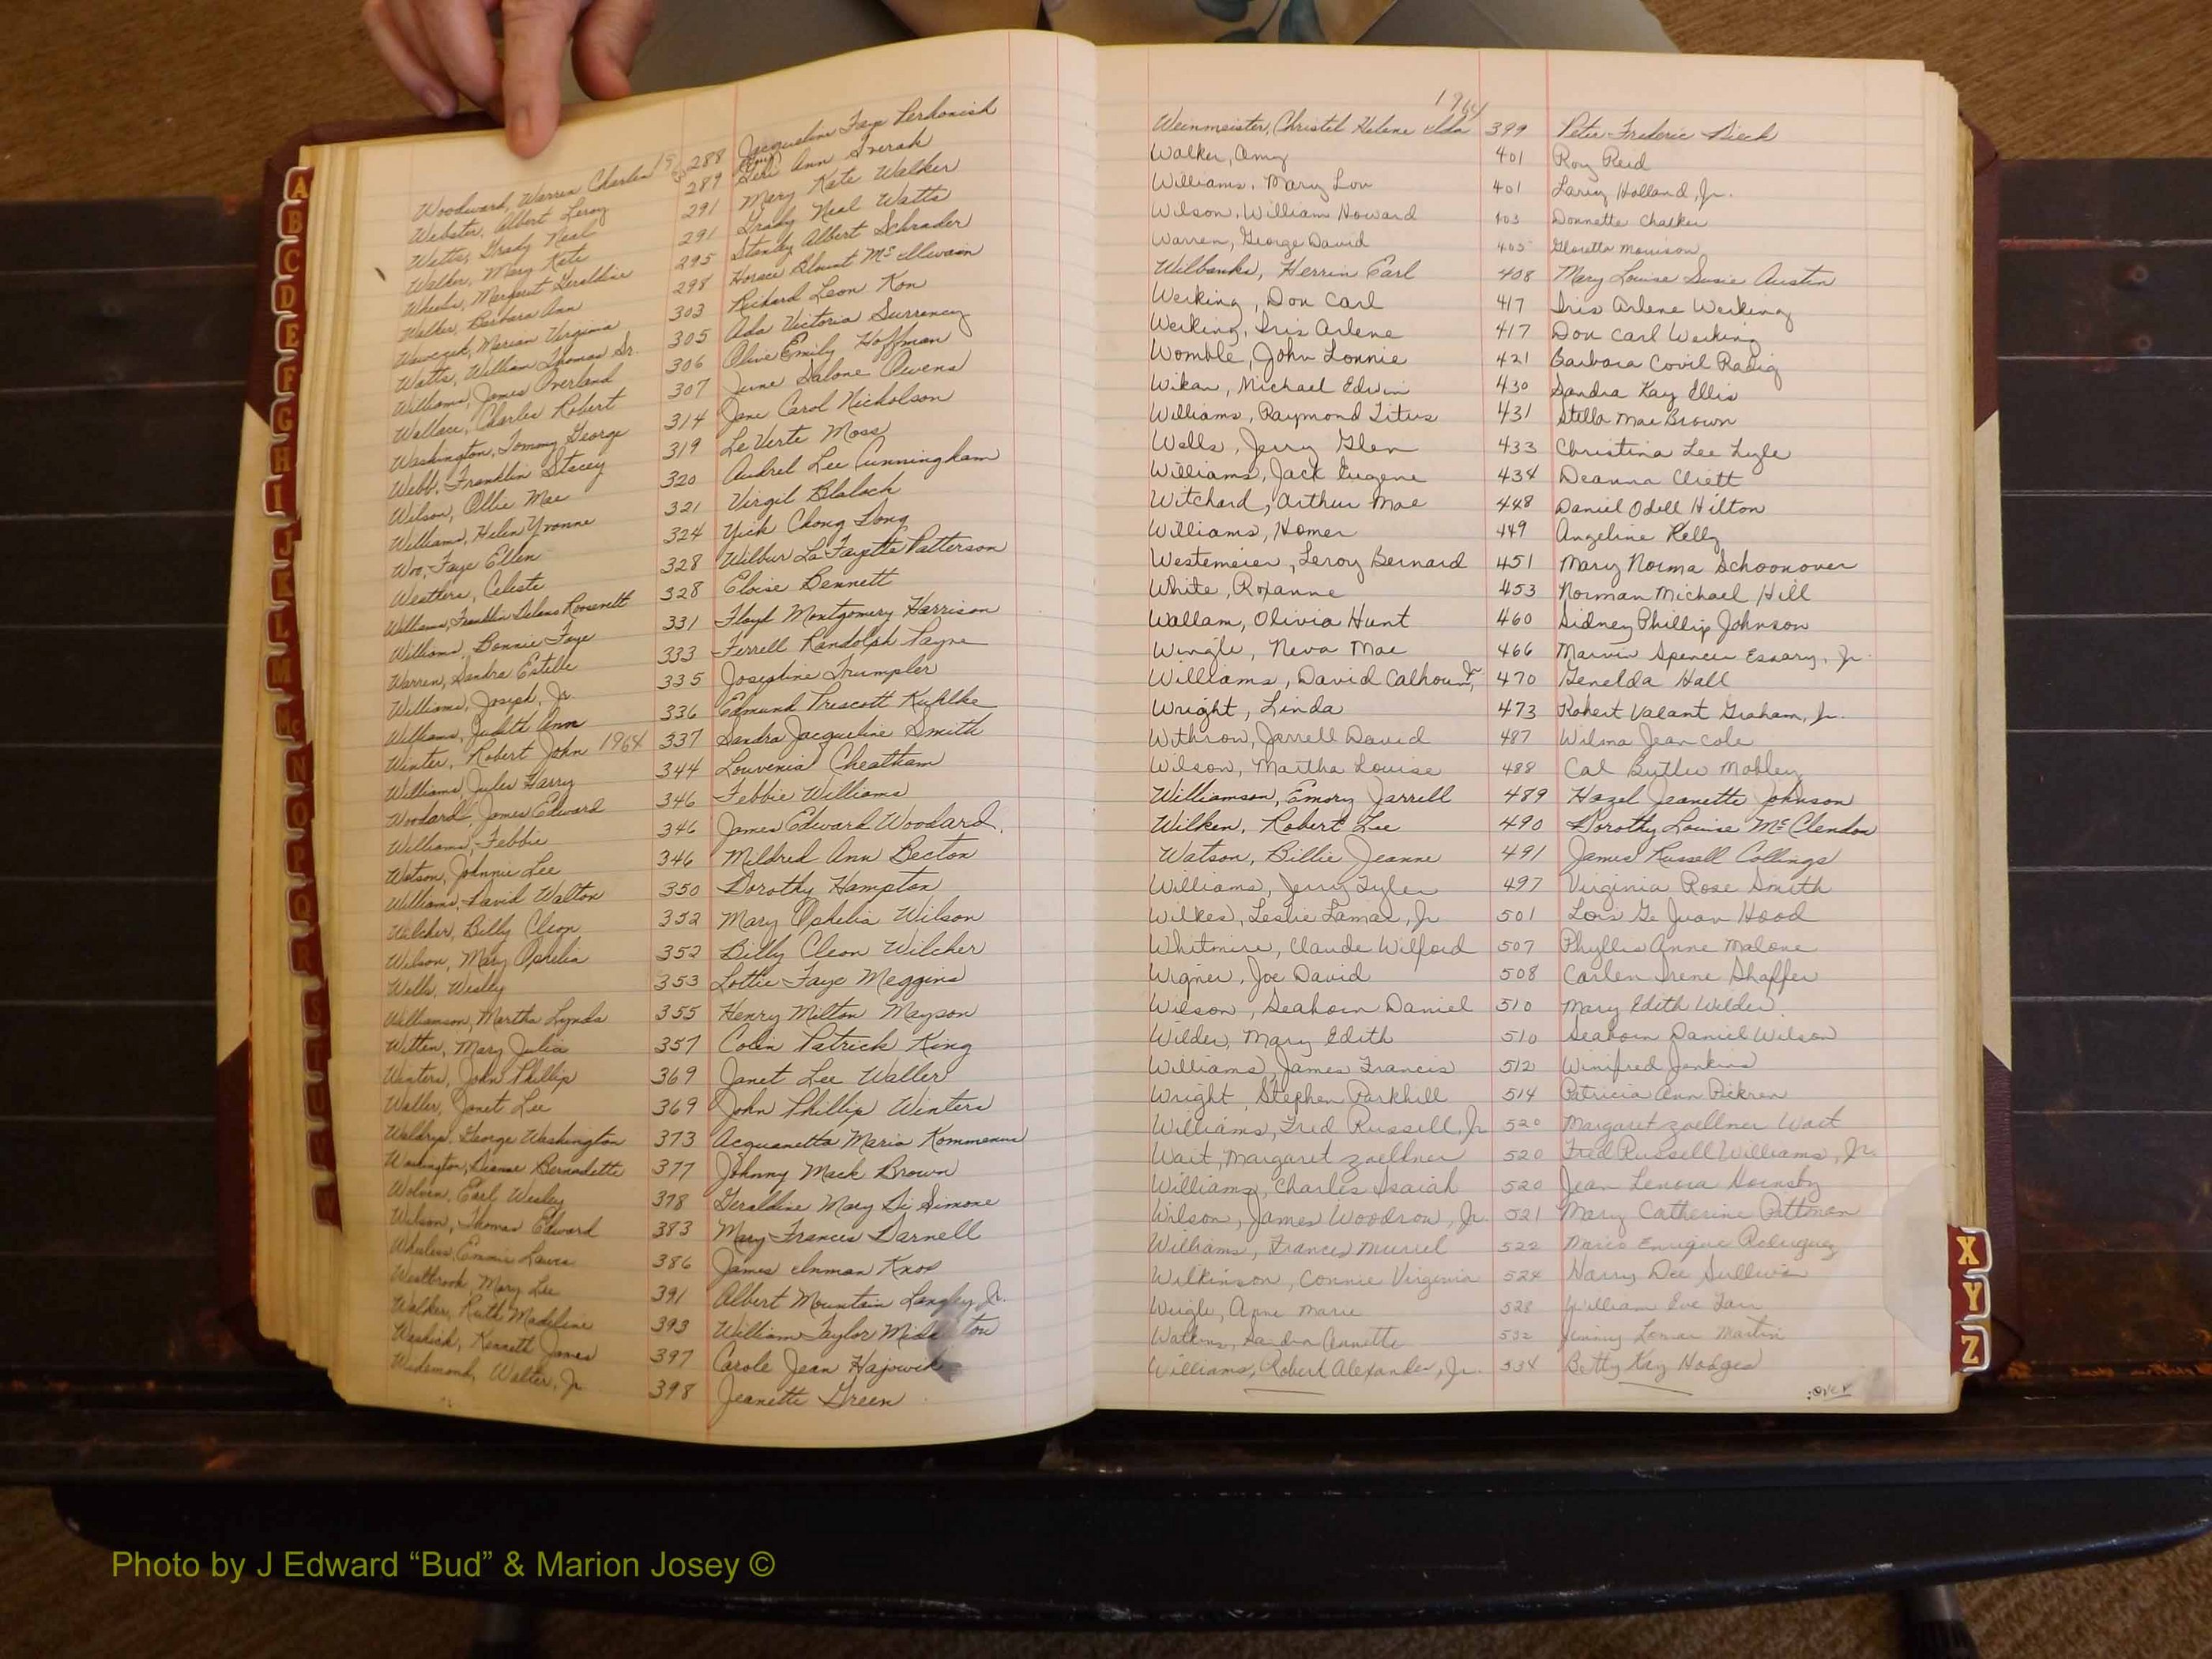 Woodward, Warren Charles 288 Jacqueline Faye Perhonish
Webster, Albert Leroy 289 Geri Ann Sverak
Watts, Grady Neal 291 Mary Kate Walker
Walker, Mary Kate 291 Grady Neal Watts
Wheeler, Margaret Geraldine 295 Stanley Albert Schrader
Walker, Barbara Ann 298 Horace Blount McElwain
Marian Virginia 303 Richard Leon Kon
Watts, William Thomas Sr. 305 Ada Victoria Surrency
Williams, James Overland 306 Olive Emily Hoffman
Wallace, Charles Robert 307 June Salone Owens
Washington, Tommy George 314 Jane Carol Nicholson
Webb, Franklin Stacey 319 LeVerte Moss
Wilson, Ollie Mae 320 Audrel Lee Cunningham
Williams, Helen Yvonne 321 Virgil Blalock
Woo, Faye Ellen 324 Yick Chong Dong
Weathers, Celeste 328 Wilbur LaFayette Patterson
Williams, Franklin Delano Roosevelt 328 Eloise Bennett
Williams, Bonnie Faye 331 Floyd Montgomery Harrison
Warren, Sandra Estelle 333 Ferrell Randolph Payne
Williams, Joseph, Jr. 335 Josephine Trumpler
Williams, Judith Ann 336 Edmund Prescott Kuhlke
Winter, Robert John 1964 337 Sandra Jacqueline Smith
Williams, Jules Harry 344 Louvenia Cheatham
Woodard, James Edward 346 Febbie Williams
Williams, Febbie 346 James Edward Woodard
Watson, Johnnie Lee 346 Mildred Ann Becton
Williams, David Walton 350 Dorothy Hampton
Wilcher, Billy Cleon 352 Mary Ophelia Wilson
Wilson, Mary Ophelia 352 Billy Cleon Wilcher
Wells, Wesley 353 Lottie Faye Meggins
Williamson, Martha Lynda 355 Henry Milton Mayson
Witten, Mary Julia 357 Colin Patrick King
Winters, John Phillip 369 Janet Lee Waller
Waller, Janet Lee 369 John Phillip Winters
George Washington 373 Acquanetta Maria
Washington, Dianne Bernadette 377 Johnny Mack Brown
Wolven, Earl Wesley 378 Geraldine Mary Di Simone
Wilson, Thomas Edward 383 Mary Frances Darnell
Wheeless, Emmie Laura 386 James Inman Knox
Westbrook, Mary Lee 391 Albert Mountain Langley, Jr.
Walker, Ruth Madeline 393 William Taylor Middleton
Kenneth James 397 Carole Jean Hajowik
Walter, Jr. 398 Jeanette Green
1964
Weinmeister, Christel Helene Ida 399 Peter Frederic Dieck
Walker, Amy 401 Roy Reid
Williams, Mary Lou 401 Larry Holland, Jr.
Wilson, William Howard 403 Donnette Chalker
Warren, George David 405 Gloretta Morrison
Wilbanks, Herrin Earl 408 Mary Louise Susie Austin
Werking, Don Carl 417 Iris Arlene Werking
Werking, Iris Arlene 417 Don Carl Werking
Womble, John Lonnie 421 Barbara Covil Radig
Wikan, Michael Edwin 430 Sandra Kay Ellis
Williams, Raymond Titus 431 Stella Mae Brown
Wells, Jerry Glen 433 Christina Lee Lyle
Williams, Jack Eugene 434 Deanna Cliett
Witchard, Arthur Mae 448 Daniel Odell Hilton
Williams, Homer 449 Angeline Kelly
Westemeier, Leroy Bernard 451 Mary Norma Schoonover
White, Roxanne 453 Norman Michael Hill
Wallam, Olivia Hunt 460 Sidney Phillip Johnson
Wingle, Neva Mae 466 Marvin Spencer Essary, Jr.
Williams, David Calhoun, Jr. 470 Genelda Hall
Wright, Linda 473 Robert Valant Graham, Jr.
Withrow, Jarrell David 487 Wilma Jean Cole
Wilson, Martha Louise 488 Cal Butler Mobley
Williamson, Emory Jarrell 489 Hazel Jeanette Johnson
Wilken, Robert Lee 490 Dorothy Louise McClendon
Watson, Billie Jeanne 491 James Russell Collings
Williams, Jerry Tyler 497 Virginia Rose Smith
Wilkes, Leslie Lamar, Jr 501 Lois Ge Juan Hood
Whitmire, Claude Wilford 507 Phyllis Anne Malone
Wigner, Joe David 508 Carlen Irene Shaffer
Wilson, Seahorn Daniel 510 Mary Edith Wilder
Wilder, Mary Edith 510 Seahorn Daniel Wilson
Williams, James Francis 512 Winifred Jenkins
Wright, Stephen Parkhill 514 Patricia Ann Pickren
Williams, Fred Russell, Jr 520 Margaret Zoellner Wait
Wait, Margaret Zoellner 520 Fred Russell Williams, Jr.
Williams, Charles Isaiah 520 Jean Lenora Hornsby
Wilson, James Woodrow, Jr. 521 Mary Catherine Pittman
Williams, Frances Muriel 522 Mario Enrique Rodriguez
Wilkinson, Connie Virginia 524 Harry Dee Sullivan
Weigle, Anne Marie 528 William Eve
Watkins, Sandra Annette 532 Jimmy Lamar Martin
Williams, Robert Alexander, Jr. 534 Betty Kay Hodges
:over
A
B
C
D
E
F
G
H
I
J
K
L
M
Mc
N
O
P
Q
R
S
T
U
V
W
X
Y
Z
Photo by J Edward “Bud” & Marion Josey ©